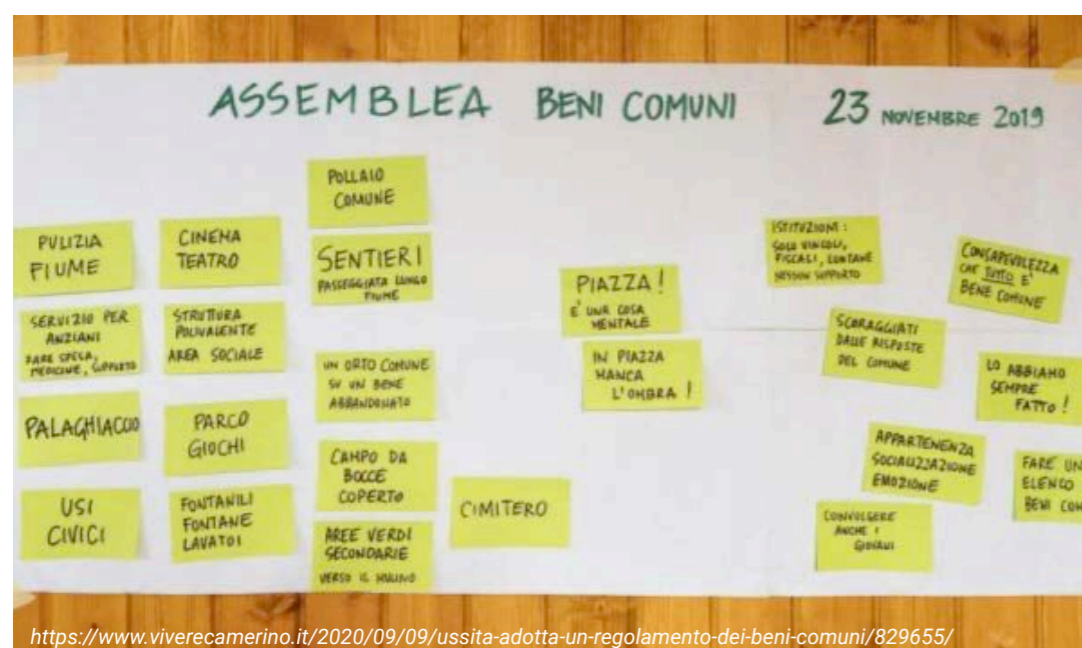 ASSEMBLEA BENI COMUNI 23 NOVEMBRE 2019
PULIZIA
FIUME
SERVIZIO PER
ANZIANI
FARE SPESA,
MEDICINE, SUPPORTO
PALAGHIACCIO
USI
CIVICI
CINEMA
TEATRO
STRUTTURA
POLIVALENTE
AREA SOCIALE
PARCO
GIOCHI
FONTANILI
FONTANE
LAVATOI
POLLAIO
COMUNE
SENTIERI
PASSEGGIATA LUNGO
FIUME
UN ORTO COMUNE
SU UN BENE
ABBANDONATO
CAMPO DA
BOCCE
COPERTO
AREE VERDI
SECONDARIE
VERSO IL MULINO
CIMITERO
PIAZZA!
E' UNA COSA
MENTALE
IN PIAZZA
MANCA
L'OMBRA!
ISTITUZIONI:
SOLO VINCOLI,
FISCALI, LONTANE
NESSUN SUPPORTO
SCORAGGIATI
DALLE RISPOSTE
DEL COMUNE
APPARTENENZA
SOCIALIZZAZIONE
EMOZIONE
COINVOLGERE
ANCHE I
GIOVANI
CONSAPEVOLEZZA
CHE TUTTO E'
BENE COMUNE
LO ABBIAMO
SEMPRE
FATTO!
FARE UN
ELENCO
BENI COM
https://www.viverecamerino.it/2020/09/09/ussita-adotta-un-regolamento-dei-beni-comuni/829655/